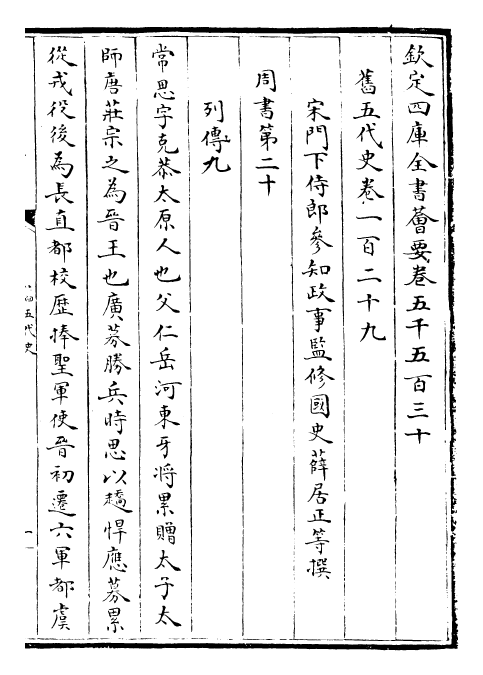 欽定四庫全書薈要卷五千五百三十
舊五代史卷一百二十九
宋門下侍郎參知政事監修國史薛居正等撰
周書第二十
列傳九
常思字克恭太原人也父仁岳河東牙將累贈太子太
師唐莊宗之為晉王也廣募勝兵時思以趫悍應募累
從戎役後為長直都校歷捧聖軍使晉初遷六軍都虞
五代史